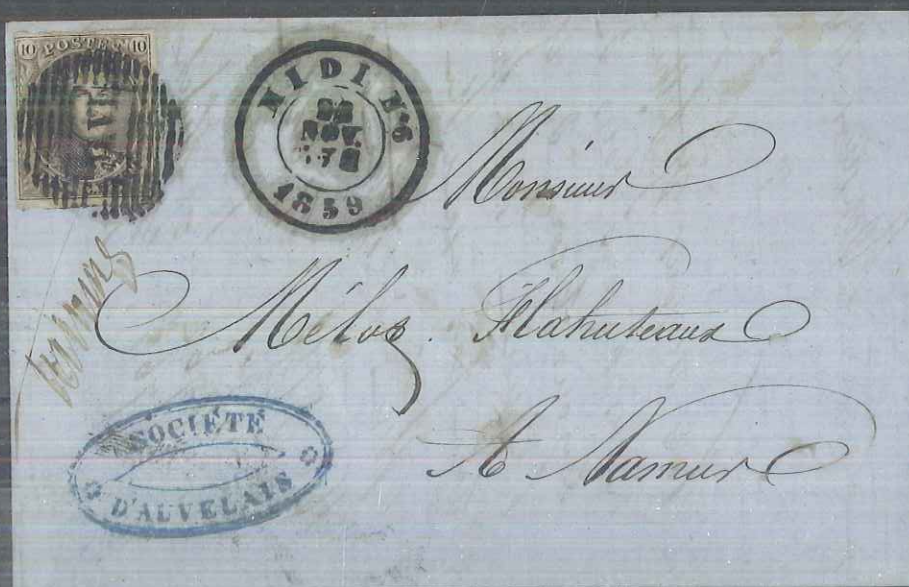 10 POSTES 10
MIDI Nº6
22
NOV.
1859
Monsieur
Mélos. Flahuteaux
A Namur
SOCIÉTÉ
D'AUVELAIS